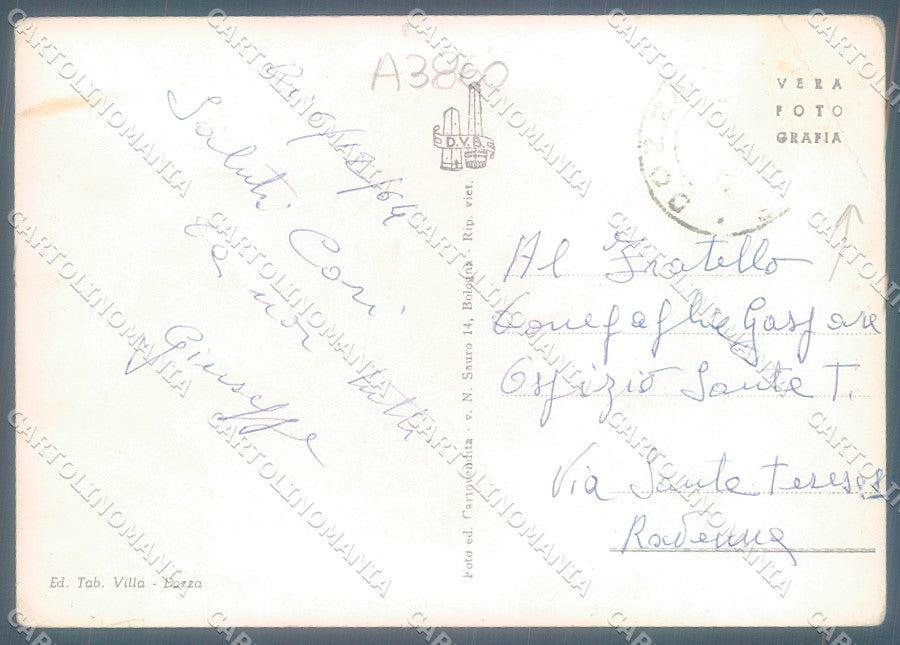 A3860
Saluti Cari
da noi tutti
Giuseppe
D.V.B.
Foto ed. Cartovendita - v. N. Sauro 14, Bologna - Rip. viet.
VERA
FOTO
GRAFIA
Al Fratello
Gaspare
Ospizio Santa T.
Via Santa Teresa
Ravenna
Ed. Tab. Villa - Dozza
CARTOLINOMANIA